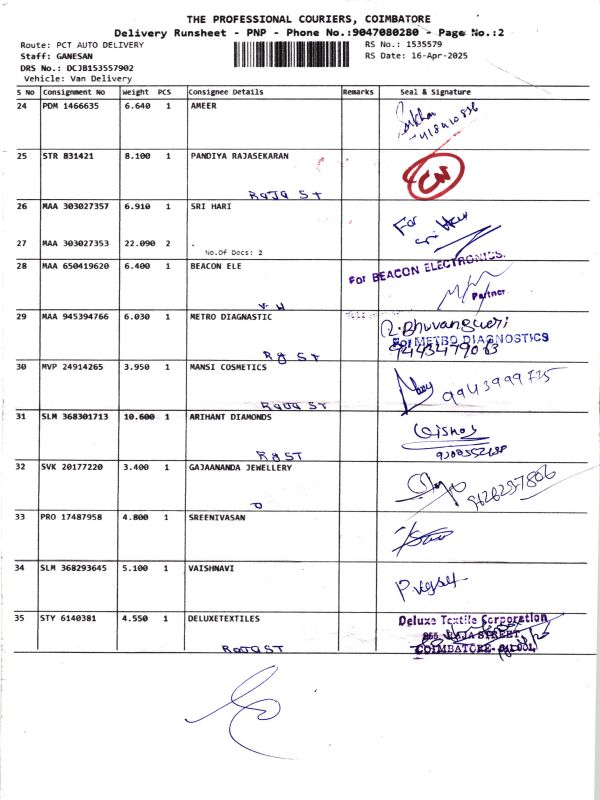 THE PROFESSIONAL COURIERS, COIMBATORE
Delivery Runsheet - PNP - Phone No.:9047080280 - Page No.:2
Route: PCT AUTO DELIVERY RS No.: 1535579
Staff: GANESAN RS Date: 16-Apr-2025
DRS No.: DCJB153557902
Vehicle: Van Delivery
S No Consignment No Weight PCS Consignee Details Remarks Seal & Signature
24 PDM 1466635 6.640 1 AMEER
25 STR 831421 8.100 1 PANDIYA RAJASEKARAN
RAJA ST
26 MAA 303027357 6.910 1 SRI HARI
For
27 MAA 303027353 22.090 2 .
No.Of Docs: 2
28 MAA 650419620 6.400 1 BEACON ELE
For BEACON ELECTRONICS.
Partner
29 MAA 945394766 6.030 1 METRO DIAGNASTIC
R.Bhuvaneswari
For METRO DIAGNOSTICS
9443479063
RJ ST
30 MVP 24914265 3.950 1 MANSI COSMETICS
9943999775
RAJA ST
31 SLM 368301713 10.600 1 ARIHANT DIAMONDS
RJ ST
32 SVK 20177220 3.400 1 GAJAANANDA JEWELLERY
33 PRO 17487958 4.800 1 SREENIVASAN
34 SLM 368293645 5.100 1 VAISHNAVI
35 STY 6140381 4.550 1 DELUXETEXTILES
Deluxe Textile Corporation
RAJA STREET
COIMBATORE- 641001
RAJA ST